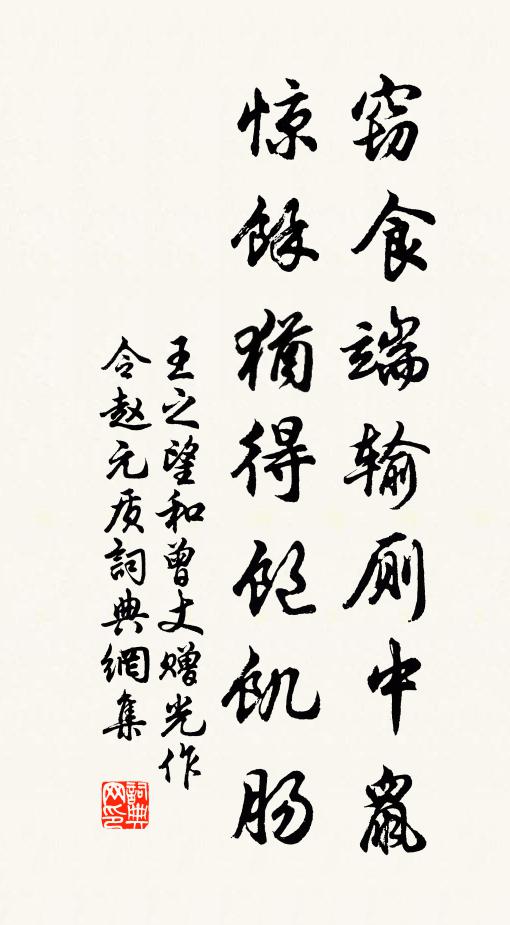 窃食端输厕中鼠
惊馀猶得饱飢肠
王之望和曾丈赠光作
令赵元质詞典網集
詞典网印